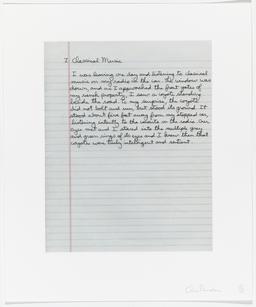 I Classical Music
I was leaving one day and listening to classical
music on my radio in the car. The window was
down, and as I approached the front gates of
my ranch property, I saw a coyote standing
beside the road. To my surprise, the coyote
did not bolt and run, but stood its ground. It
stood about five feet away from my stopped car,
listening intently to the sounds on the radio. Our
eyes met and I stared into the multiple gray
and green rings of its eyes and I knew then that
coyotes were truly intelligent and sentient.